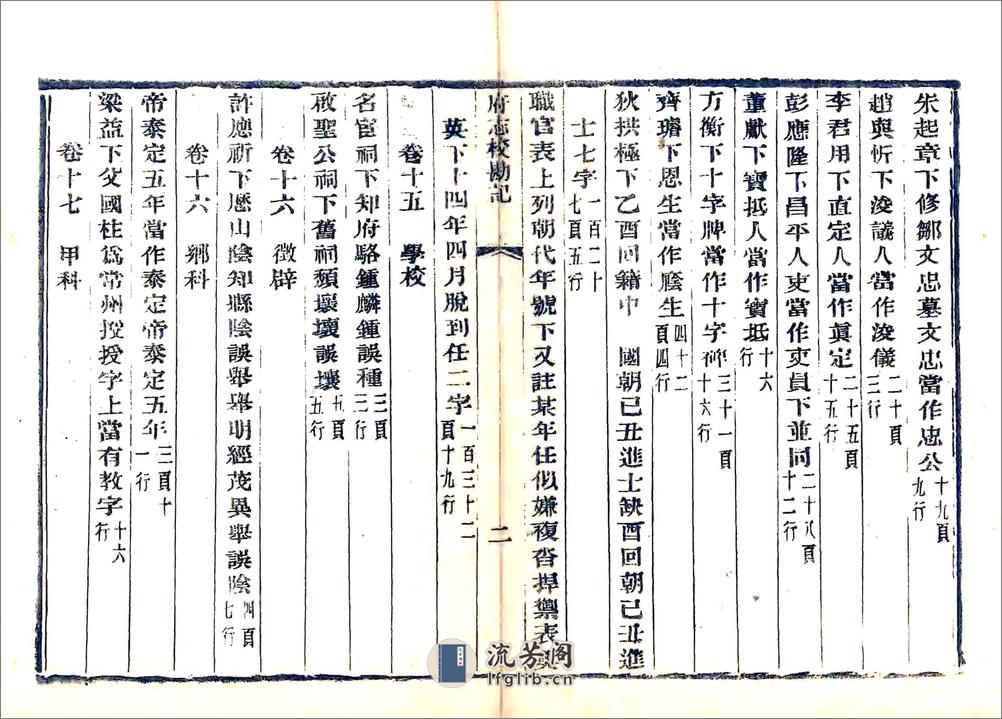 朱起章下修鄒文忠墓文忠當作忠公十九頁九行
趙與忻下浚議人當作浚儀二十頁三行
李君用下直定人當作眞定二十五頁十五行
彭應隆下昌平人吏當作吏員下並同二十八頁十二行
董獻下寶抵人當作寶坻十六行
方衡下十字牌當作十字碑三十一頁十六行
齊璿下恩生當作廕生四十二頁四行
狄拱極下乙酉回籍中 國朝己丑進士缺酉回朝己丑進
士七字一百二十七頁五行
職官表上列朝代年號下又註某年任似嫌複沓捍禦表
府志校勘記
二
英下十四年四月脫到任二字一百三十二頁十九行
卷十五 學校
名宦祠下知府駱鍾麟鍾誤種三頁三行
啟聖公祠下舊祠頽壞壞誤壤五頁五行
卷十六 徵辟
許應祈下歷山陰知縣陰誤舉舉明經茂異舉誤陰四頁七行
卷十六 鄉科
帝泰定五年當作泰定帝泰定五年三頁十一行
梁益下父國柱爲常州授授字上當有教字十六行
卷十七 甲科
流芳阁
lfglib.cn